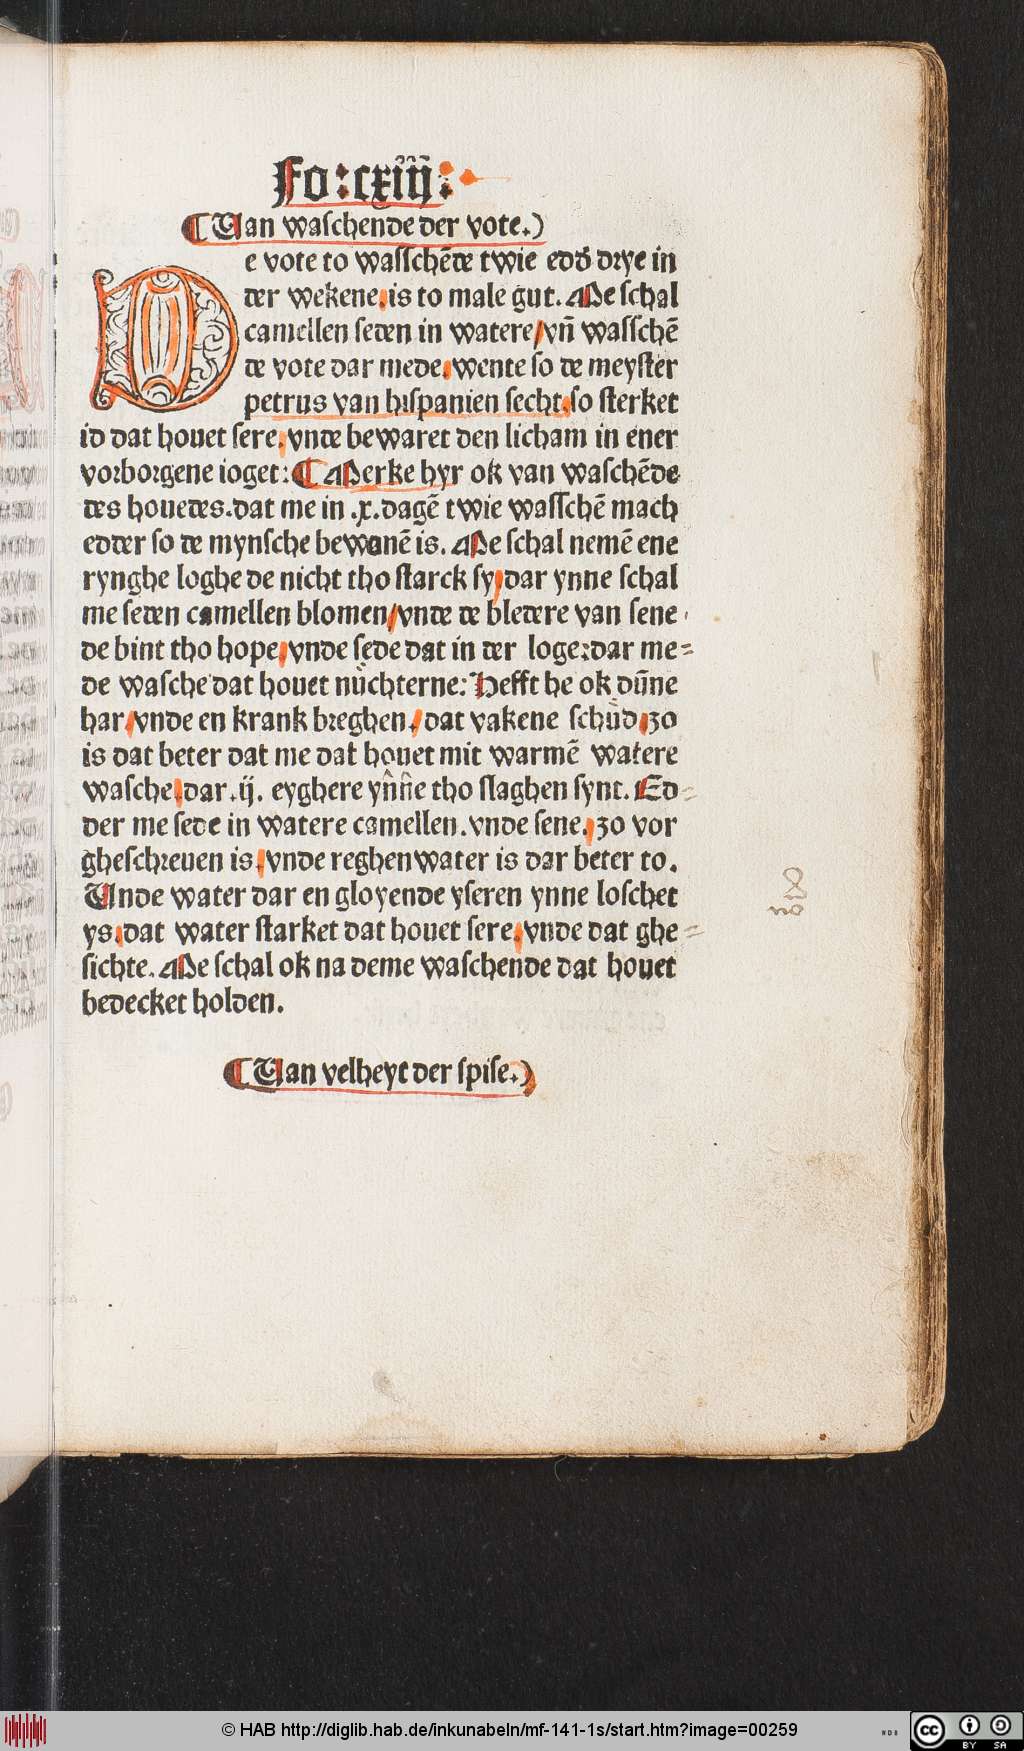 Fo: cxiiij:
¶ Uan waſchende der vote.)
De vote to waſſchēde twie edð drye in
der wekene.is to male gut. Me ſchal
camellen ſeden in watere/vn̄ waſſchē
de vote dar mede.wente ſo de meyſter
petrus van hiſpanien ſecht.ſo ſterket
id dat houet ſere.vnde bewaret den licham in ener
vorborgene ioget: ¶ Merke hyr ok van waſchēde
des houedes.dat me in .x.dagē twie waſſchē mach
edder ſo de mynſche bewonē is. Me ſchal nemē ene
rynghe loghe de nicht tho ſtarck ſy/dar ynne ſchal
me ſeden camellen blomen/vnde de bledere van ſene
de bint tho hope.vnde ſede dat in der loge:dar me⸗
de waſche dat houet nuͤchterne: Hefft he ok dūne
har/vnde en krank breghen/dat vakene ſchuͤd/zo
is dat beter dat me dat houet mit warmē watere
waſche.dar.ij. eyghere yn̄ne tho ſlaghen ſynt. Ed⸗
der me ſede in watere camellen.vnde ſene.zo vor
gheſchreuen is.vnde reghenwater is dar beter to.
Unde water dar en gloyende yſeren ynne loſchet
ys.dat water ſtarket dat houet ſere.vnde dat ghe⸗
ſichte. Me ſchal ok na deme waſchende dat houet
bedecket holden.
¶ Uan velheyt der ſpiſe.)
© HAB http://diglib.hab.de/inkunabeln/mf-141-1s/start.htm?image=00259
WDB
cc BY SA